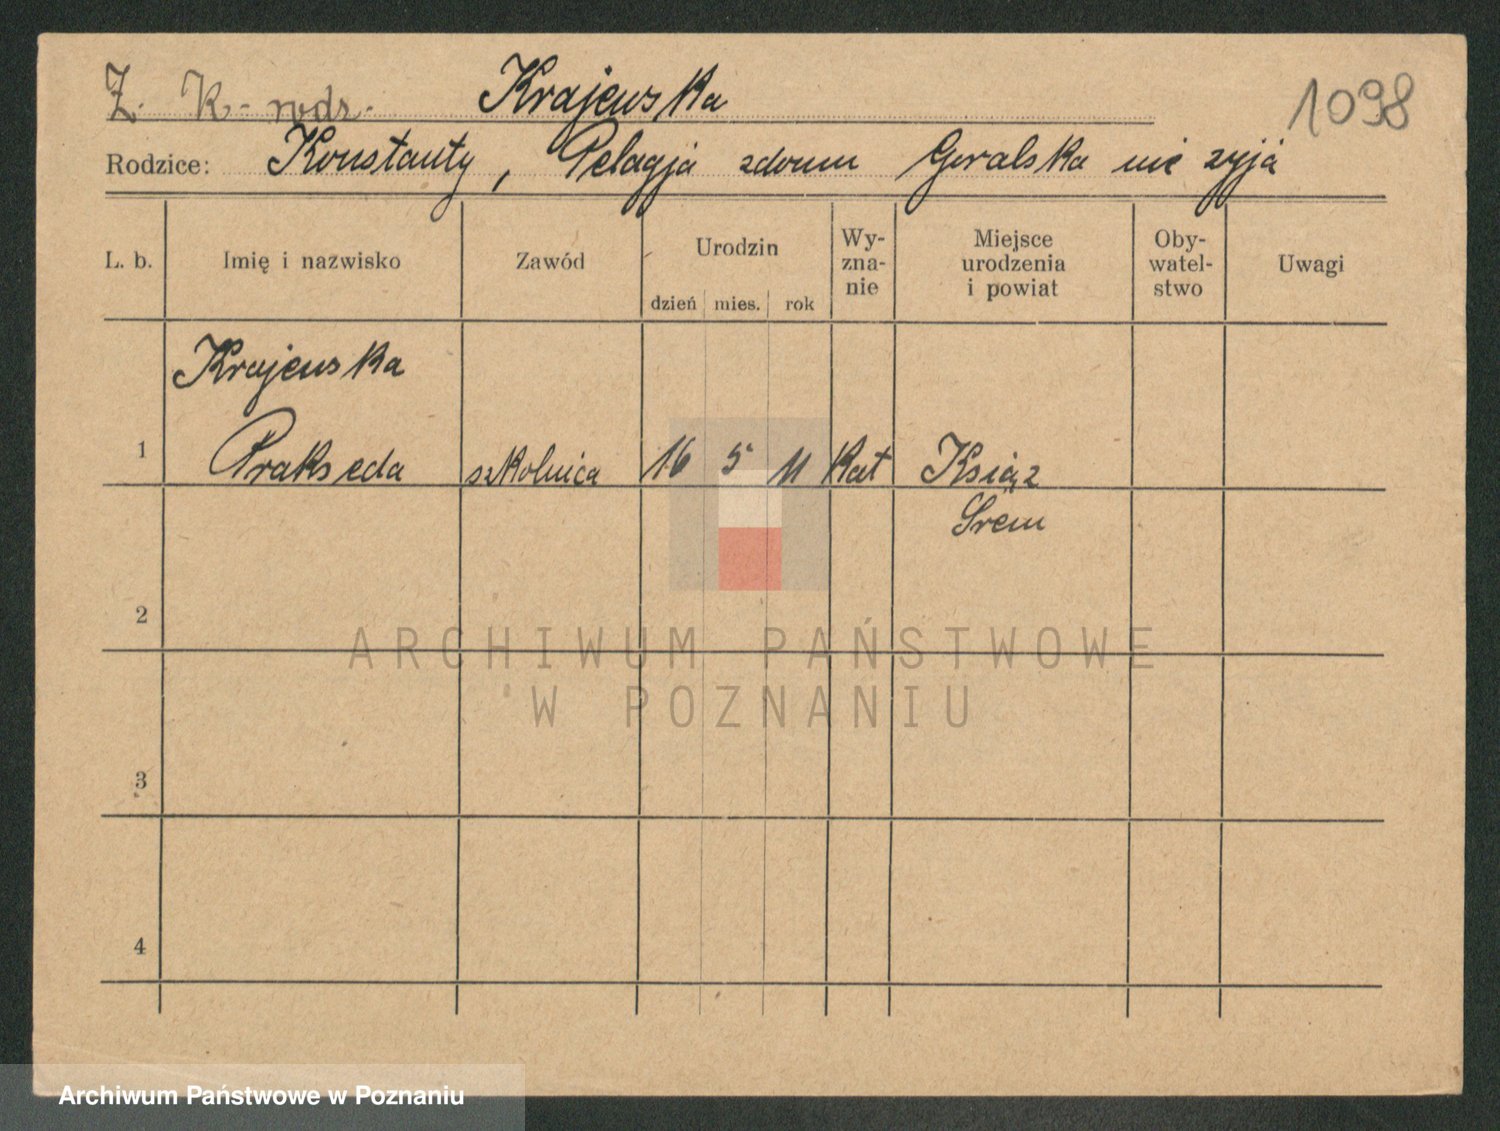 Ż. K- rodz. Krajewska 1098
Rodzice: Konstanty, Pelagja zdomu Goralska nie zyją
L. b. Imię i nazwisko Zawód Urodzin dzień mies. rok Wy-
zna-
nie Miejsce
urodzenia
i powiat Oby-
watel-
stwo Uwagi
Krajewska
1 Prakseda szkolnica 16 5 11 Kat Książ
Śrem
2
3
4
ARCHIWUM PAŃSTWOWE
W POZNANIU
Archiwum Państwowe w Poznaniu